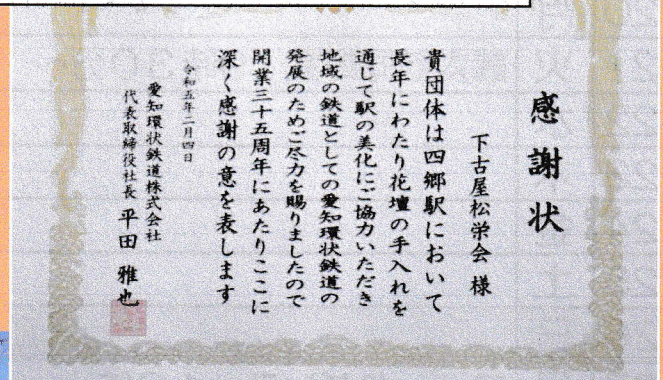 感謝状
下古屋松栄会 様
貴団体は四郷駅において
長年にわたり花壇の手入れを
通じて駅の美化にご協力いただき
地域の鉄道としての愛知環状鉄道の
発展のためご尽力を賜りましたので
開業三十五周年にあたりここに
深く感謝の意を表します
令和五年二月四日
愛知環状鉄道株式会社
代表取締役社長 平田 雅也